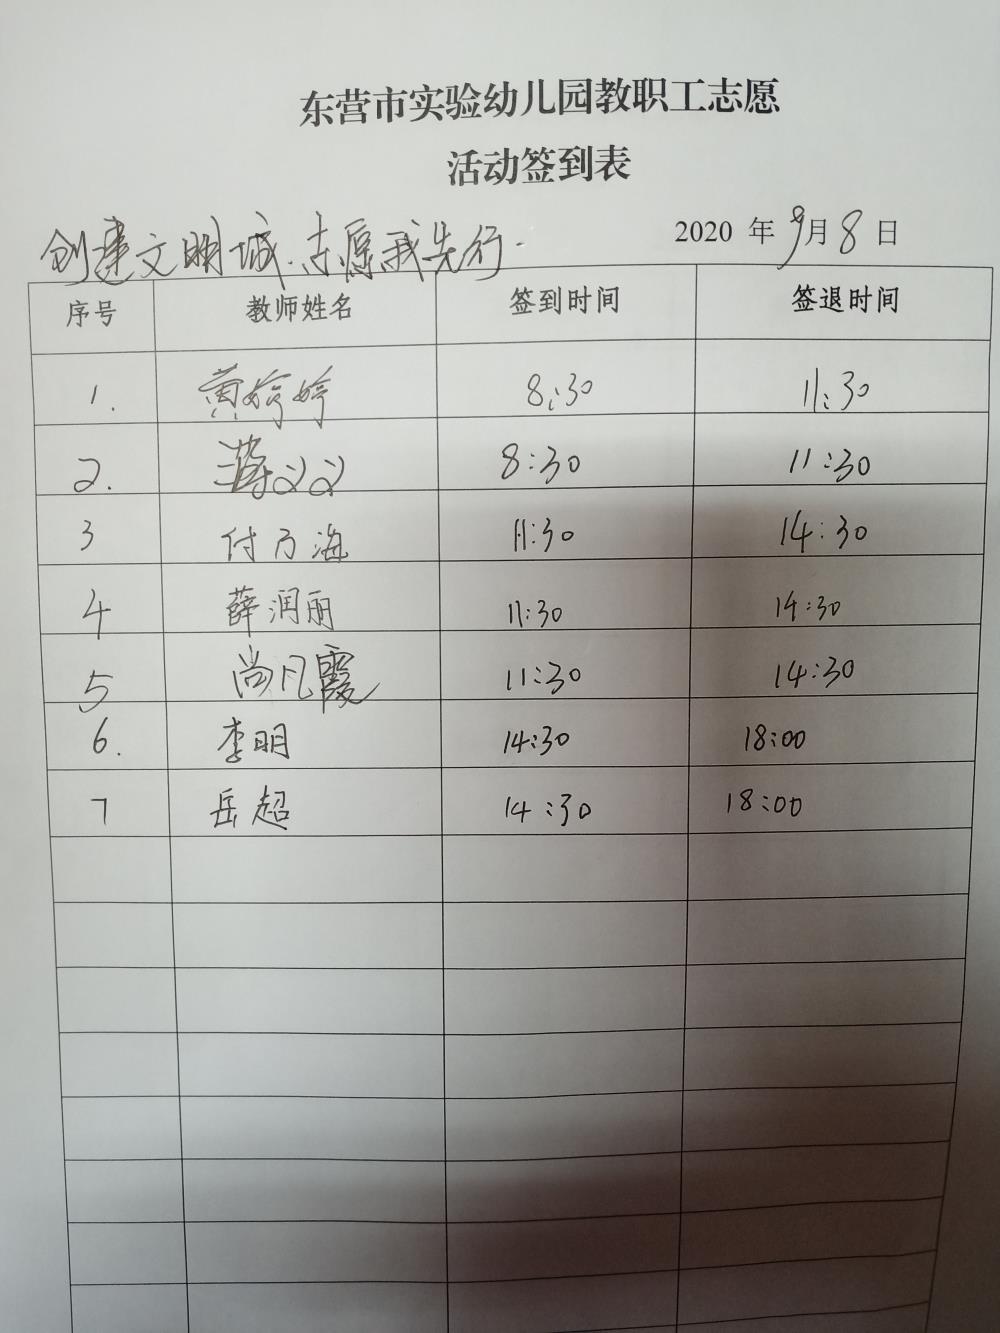 东营市实验幼儿园教职工志愿
活动签到表
创建文明城.志愿我先行. 2020 年 9月 8 日
序号 教师姓名 签到时间 签退时间
1. 黄婷婷 8:30 11:30
2. 8:30 11:30
3 付万海 11:30 14:30
4 薛润丽 11:30 14:30
5 尚凡霞 11:30 14:30
6. 李明 14:30 18:00
7 岳超 14:30 18:00